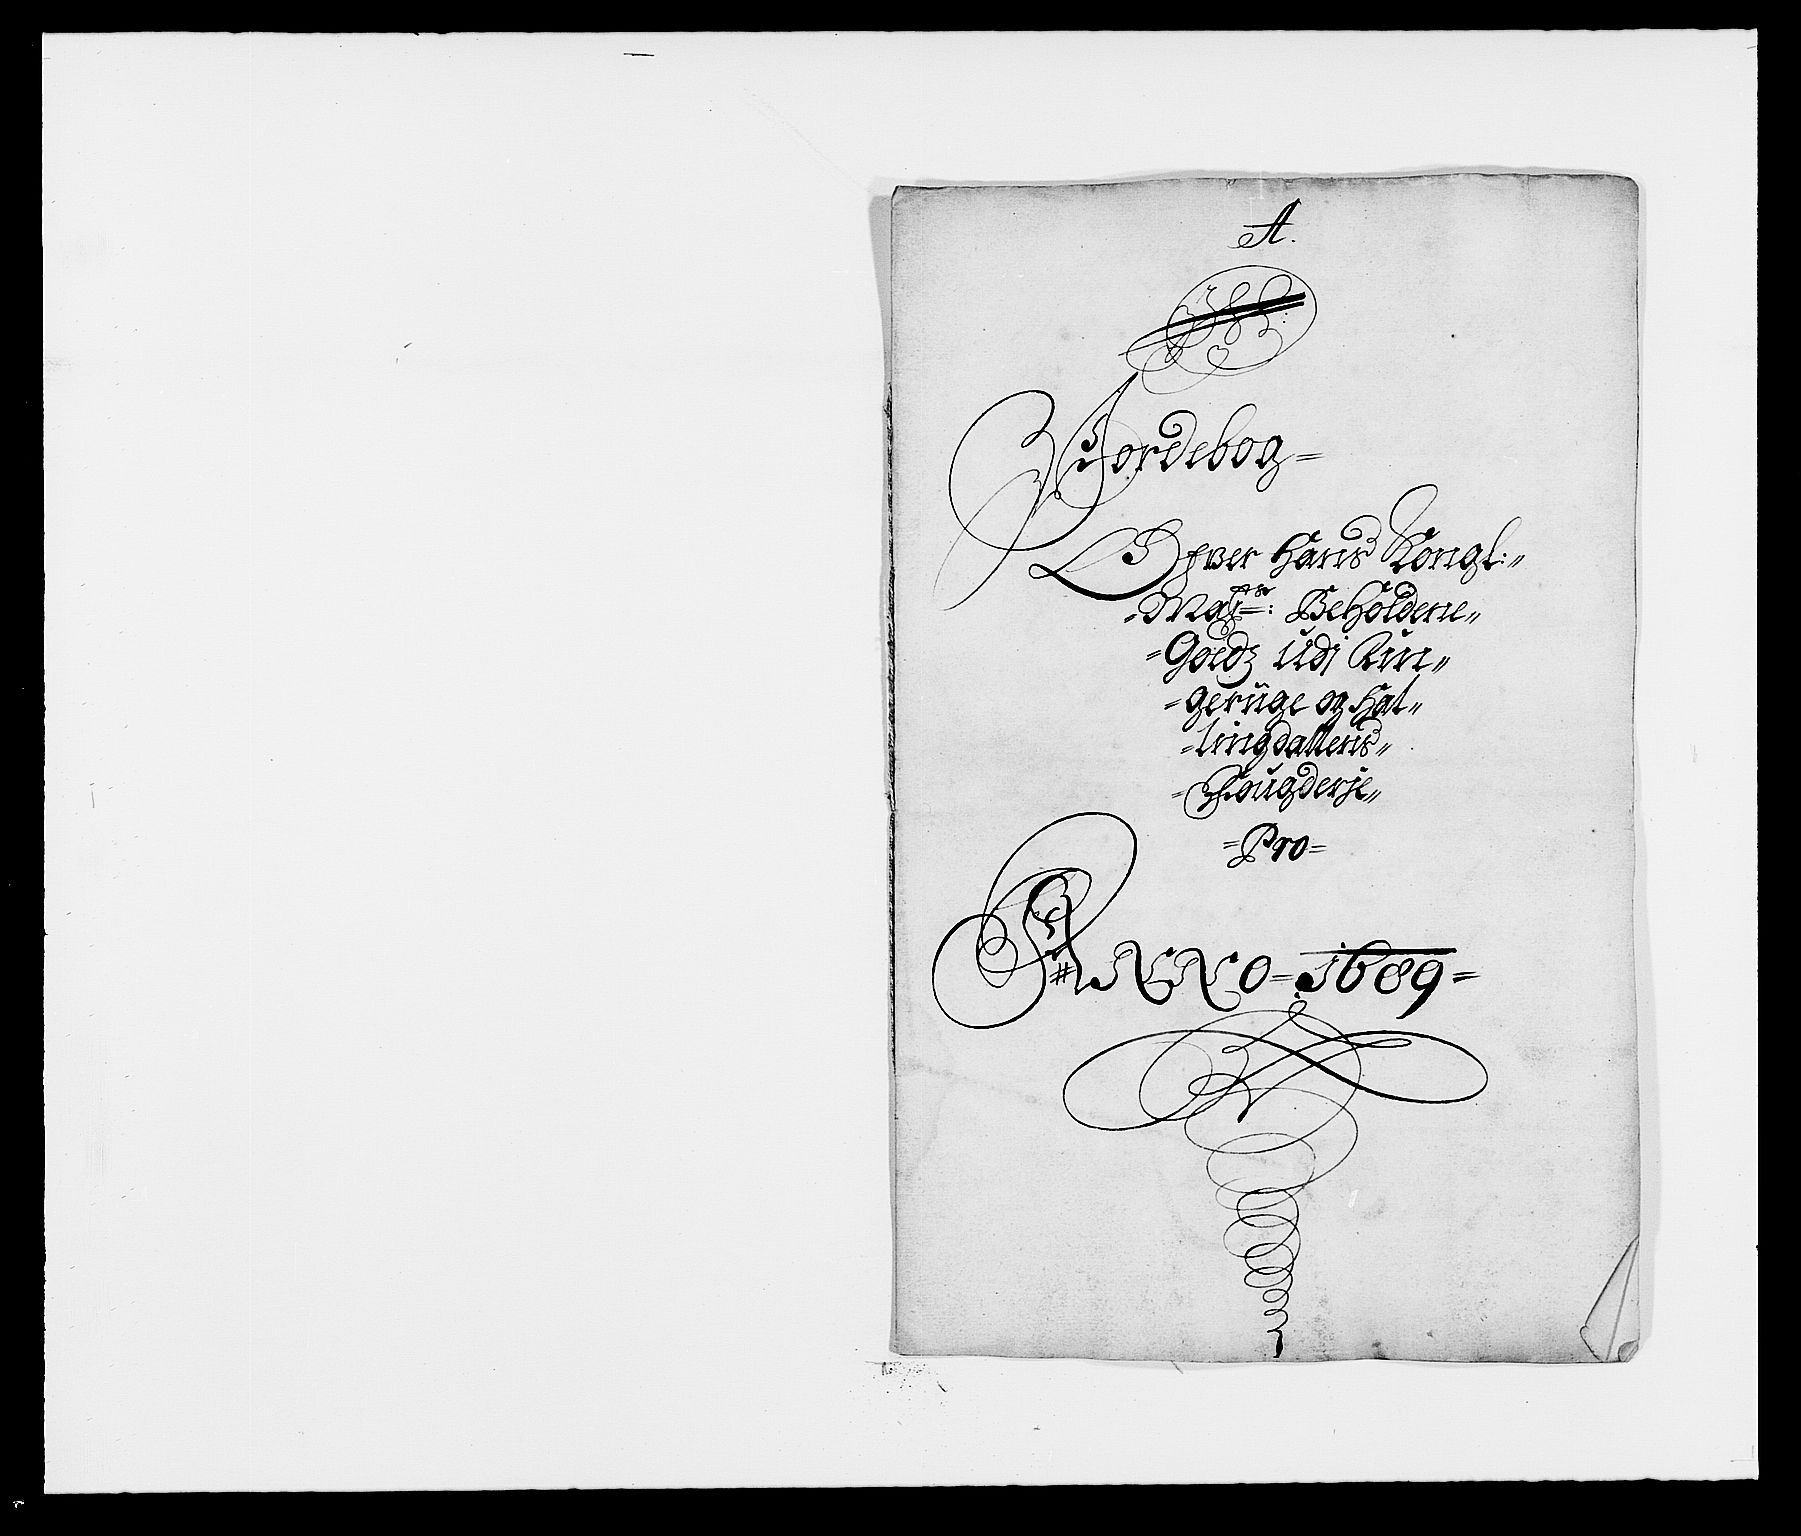 A.
Jordebog=
Ofver Hans Kongl:"
"Maÿtz: Beholdene"
=Goedz udj Rin"
=gerüge og Hal"
=lingdallens"
=Fougderje"
=Pro=
ANNO=1689=